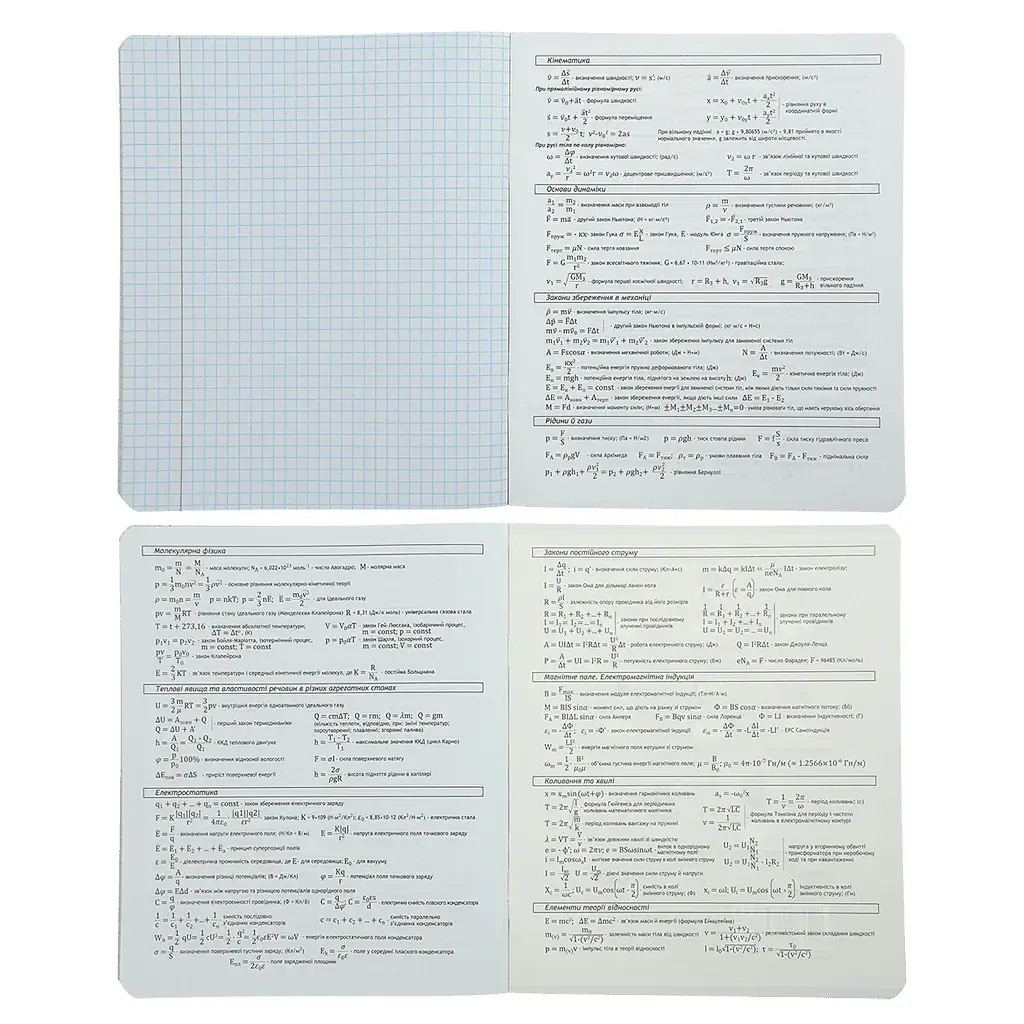 Кінематика
v̄ = Δs̄/Δt - визначення швидкості; v = s'; (м/с) ā = Δv̄/Δt - визначення прискорення; (м/с²)
При прямолінійному рівномірному русі:
v̄ = v̄₀+āt - формула швидкості x = x₀ + v₀ₓt + aₓt²/2
s̄ = v̄₀t + āt²/2 - формула переміщення y = y₀ + v₀ᵧt + aᵧt²/2 - рівняння руху в координатній формі
s = v+v₀/2 t; v²-v₀² = 2as При вільному падінні a = g; g = 9,80655 (м/с²) ≈ 9,81 прийнято в якості нормального значення, g залежить від широти місцевості.
При русі тіла по колу рівномірно:
ω = Δφ/Δt - визначення кутової швидкості; (рад/с) v₂ = ω r - зв'язок лінійної та кутової швидкості
aᵧ = v₂²/r = ω²r = v₂ω - доцентрове пришвидшення; (м/с²) T = 2π/ω - зв'язок періоду та кутової швидкості
Основи динаміки
a₁/a₂ = m₂/m₁ - визначення маси при взаємодії тіл ρ = m/v - визначення густини речовини; (кг/м³)
F̄ = mā - другий закон Ньютона; (Н = кг·м/с²) F̄₁,₂ = -F̄₂,₁ - третій закон Ньютона
Fпруж = - кх- закон Гука σ = E x/L - закон Гука, E - модуль Юнга σ = Fпруж/S - визначення пружного напруження; (Па = Н/м²)
Fтерт = μN - сила тертя ковзання Fтерт ≤ μN - сила тертя спокою
F = G m₁m₂/r² - закон всесвітнього тяжіння; G = 6,67 × 10-11 (Нм²/кг²) - гравітаційна стала;
v₁ = √GM₃/r - формула першої космічної швидкості; r = R₃ + h, v₁ = √R₃g g = GM₃/R₃+h - прискорення вільного падіння
Закони збереження в механіці
p̄ = mv̄ - визначення імпульсу тіла; (кг·м/с)
Δp̄ = F̄Δt
mv̄ - mv̄₀ = FΔt - другий закон Ньютона в імпульсній формі; (кг·м/с = Н×с)
m₁v̄₁ + m₂v̄₂ = m₁v̄'₁ + m₂v̄'₂ - закон збереження імпульсу для замкненої системи тіл
A = Fscosα - визначення механічної роботи; (Дж = Н×м) N = A/Δt - визначення потужності; (Вт = Дж/с)
Eп = кx²/2 - потенційна енергія пружно деформованого тіла; (Дж)
Eп = mgh - потенційна енергія тіла, піднятого на землею на висоту h; (Дж) Eк = mv²/2 - кінетична енергія тіла; (Дж)
E = Eк + Eп = const - закон збереження енергії для замкненої системи тіл, між якими діють тільки сили тяжіння та сили пружності
ΔE = Aзовн + Aтерт - закон збереження енергії, якщо діють інші сили ΔE = E₁ - E₂
M = Fd - визначення моменту сили; (Н×м) ±M₁±M₂±M₃...±Mₙ=0 - умова рівноваги тіл, що мають нерухому вісь обертання
Рідини й гази
p = F/S - визначення тиску; (Па = Н/м2) p = ρgh - тиск стовпа рідини F = f S/s - сила тиску гідравлічного преса
F_A = ρₚgV - сила Архімеда F_A = Fтяж; ρт = ρр - умови плавання тіла Fв = F_A - Fтяж - піднімальна сила
p₁ + ρgh₁+ ρv₁²/2 = p₂ + ρgh₂+ ρv₂²/2 - рівняння Бернуллі
Молекулярна фізика
m₀ = m/N = M/N_A - маса молекули; N_A = 6,022×10²³ моль⁻¹ - число Авогадро; M - молярна маса
p = 1/3 m₀nv² = 1/3 ρv² - основне рівняння молекулярно-кінетичної теорії
ρ = m₀n = m/v p = nkT; p = 2/3 nE; E = m₀v²/2 - для ідеального газу
pv = m/M RT - рівняння стану ідеального газу (Менделєєва-Клапейрона) R = 8,31 (Дж/к моль) - універсальна газова стала
T = t + 273,16 - визначення абсолютної температури; ΔT = Δt°, (К) V = V₀αT - закон Гей-Люссака, ізобаричний процес, m = const; p = const
p₁v₁ = p₂v₂ - закон Бойля-Маріотта, ізотермічний процес, m = const; T = const p = p₀αT - закон Шарля, ізохорний процес, m = const; V = const
pv/T = p₀v₀/T₀ - закон Клапейрона
E = 3/2 KT - зв'язок температури і середньої кінетичної енергії молекул, де K = R/N_A - постійна Больцмана
Теплові явища та властивості речовин в різних агрегатних станах
U = 3/2 m/μ RT = 3/2 pv - внутрішня енергія одноатомного ідеального газу
ΔU = Aзовн + Q
Q = ΔU + A' - перший закон термодинаміки Q = cmΔT; Q = rm; Q = λm; Q = gm
(кількість теплоти, відповідно, при: зміні температур; пароутворенні; плавленні; згорянні палива)
h = A/Q₁ = Q₁ - Q₂/Q₁ - ККД теплового двигуна h = T₁ - T₂/T₁ - максимальне значення ККД (цикл Карно)
φ = p/p₀ 100% - визначення відносної вологості F = σl - сила поверхневого натягу
ΔEпов = σΔS - приріст поверхневої енергії h = 2σ/ρgR - висота підняття рідини в капілярі
Електростатика
q₁ + q₂ + ... + qₙ = const - закон збереження електричного заряду
F = K |q₁||q₂|/r² = 1/4πε₀ · |q1||q2|/εr² - закон Кулона; K = 9×109 (Н·м²/Кл²); ε₀ = 8,85×10-12 (Кл²/Н·м²) - електрична стала
E = F/q - визначення напруги електричного поля; (Н/Кл = В/м) E = K|q|/r² - напруга електричного поля точкового заряду
E = E₁ + E₂ + .. + Eₙ - принцип суперпозиції полів
ε = E/E₀ - діелектрична проникність середовища, де E - для середовища; E₀ - для вакууму
Δφ = A/q - визначення різниці потенціалів; (В = Дж/Кл) φ = Kq/r - потенціал поля точкового заряду
Δφ = EΔd - зв'язок між напругою та різницею потенціалів однорідного поля
C = q/φ - визначення електроємності провідника; (Ф = Кл/В) C = q/Δφ; C = ε₀εs/d - електрична ємність плаского конденсатора
1/c = 1/c₁ + 1/c₂ +...+ 1/cₙ - ємність послідовно з'єднаних конденсаторів c = c₁ + c₂ + ... + cₙ - ємність паралельно з'єднаних конденсаторів
Wэ = 1/2 qU = 1/2 cU² = 1/2 · q²/c = 1/2 ε₀εE²V = ωV - енергія електростатичного поля конденсатора
σ = q/S - визначення поверхневої густини заряду; (Кл/м²) E₀ = σ/ε₀ε - поле у середині плаского конденсатора
Eпл = σ/2ε₀ε - поле зарядженої площини
Закони постійного струму
I = Δq/Δt; i = q' - визначення сили струму; (Кл=А×с) m = kΔq = kIΔt = μ/neN_A IΔt - закон електролізу;
I = U/R - закон Ома для дільниці ланки кола I = ε/R+r (ε = A/q) - закон Ома для повного кола
R = ρl/S - залежність опору провідника від його розмірів
R = R₁ + R₂ +...+ Rₙ 1/R = 1/R₁ + 1/R₂ +...+ 1/Rₙ
I = I₁ = I₂ =...= Iₙ - закони при послідовному злученні провідників I = I₁ + I₂ +...= Iₙ - закони при паралельному злученні провідників
U = U₁ + U₂ +...+ Uₙ U = U₁ = U₂ =...= Uₙ
A = UIΔt = I²RΔt = U²/R Δt - робота електричного струму; (Дж) Q = I²RΔt - закон Джоуля-Ленца.
P = A/Δt = UI = I²R = U²/R - потужність електричного струму; (Вж) eN_A = F - число Фарадея; F = 96485 (Кл/моль)
Магнітне поле. Електромагнітна індукція
B = Fmax/IS - визначення модуля електромагнітної індукції; (Тл=Н/А·м)
M = BIS sinα - момент сил, що діють на рамку зі струмом Φ = BS cosα - визначення магнітного потоку; (Вб)
F_A = BIΔL sinα - сила Ампера F_B = Bqv sinα - сила Лоренца Φ = LI - визначення індуктивності; (Г)
εᵢ = - ΔΦ/Δt; εᵢ = -Φ' - закон електромагнітної індукції εᵢₛ = - ΔΦ/Δt = -L ΔI/Δt = -LI' - ЕРС Самоіндукція
Wₘ = LI²/2 - енергія магнітного поля котушки зі струмом
ωₘ = 1/2 · B²/μ₀μ - об'ємна густина енергії магнітного поля; μ = B/B₀; μ₀ = 4π·10⁻⁷ Гн/м (≈ 1.2566×10⁻⁶ Гн/м)
Коливання та хвилі
x = xₘ sin(ωt+φ) - визначення гармонічних коливань aₓ = -ω₀²x T = 1/ν = 2π/ω - період коливань; (с)
T = 2π√l/g - формула Гюйгенса для періодичних коливань математичного маятника T = 2π√LC
T = 2π√m/k - період коливань вантажу на пружині ν = 1/2π√LC - формула Томсона для періоду і частоти коливань в електромагнітному контурі
λ = VT = V/ν - зв'язок довжини хвилі зі швидкістю
e = - ϕ'; ω = 2πν; e = BSωsinωt - виток в однорідному магнітному полі U₂ = U₁ N₂/N₁
i = Iₘcosω₀t - миттєве значення сили струму в колі змінного струму U₂ = U₁ N₂/N₁ - I₂R₂ - напруга у вторинному обвитті трансформатора при неробочому ході та при навантаженні.
I = Iₘ/√2 U = Uₘ/√2 - діючі значення сили струму й напруги
X_c = 1/ωC; U_c = Uₘcos(ωt - π/2) - ємність в колі змінного струму; (Ф) x_L = ωL; U_L = Uₘcos(ωt + π/2) - індуктивність в колі змінного струму; (Гн)
Елементи теорії відносності
E = mc²; ΔE = Δmc² - зв'язок маси й енергії (формула Ейнштейна)
m(v) = m₀/√1-(v²/c²) - залежність маси тіла від швидкості v = v₁+v₂/1+(v₁v₂/c²) - релятивістський закон складання швидкості
p = m(v)v - імпульс тіла в теорії відносності l = l₀√1-(v²/c²); τ = τ₀/√1-(v²/c²)